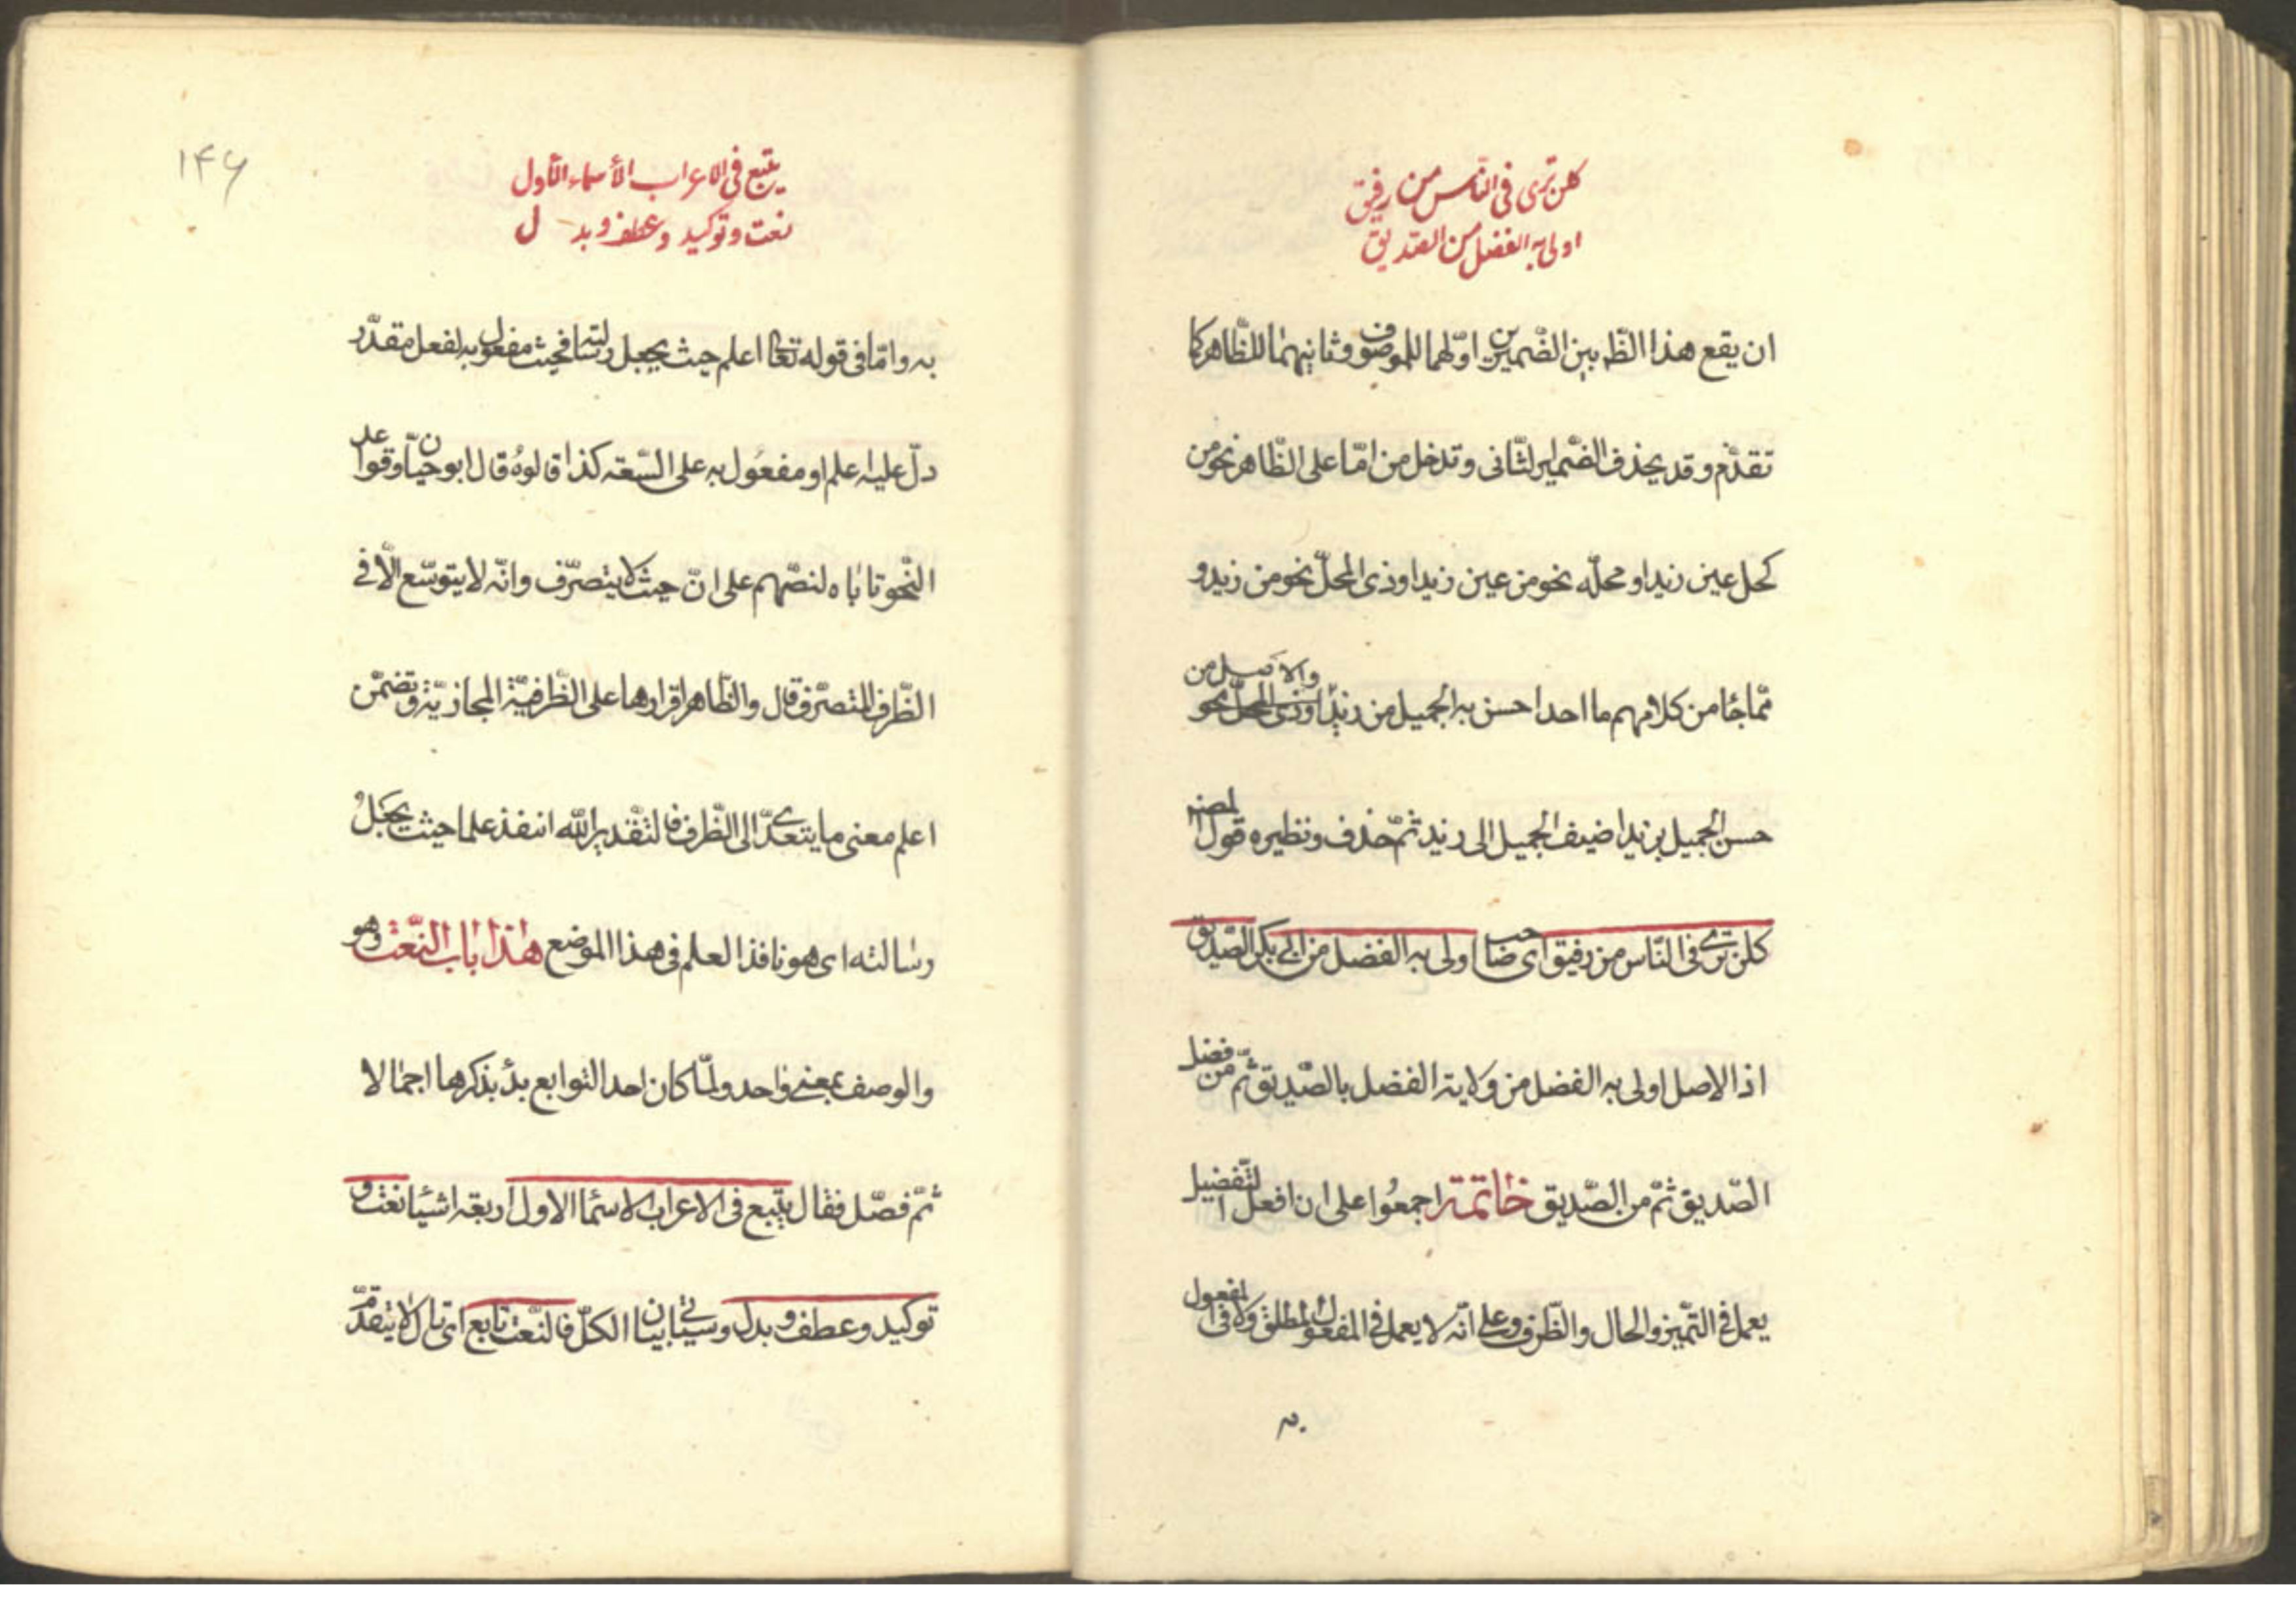 كلن ترى فى النّاس من رفيق
اولى به الفضل من الصّديق
ان يقع هذا الظّ بين الضّميرين اوّلهما للموصوف وثانيهما للظّاهر كما
تقدّم وقد يحذف الضّمير الثّانى وتدخل من امّا على الظّاهر نحو من
كحل عين زيد او محلّه نحو من عين زيد او ذى المحلّ نحو من زيد و
ممّا جٓا من كلامهم ما احد احسن به الجميل من زيد او ذى المحلّ نحو والاصل من
حسن الجميل بزيد اضيف الجميل الى زيد ثمّ حذف ونظيره قول المصنـ
كلن ترى فى النّاس من رفيق اى صاحب اولى به الفضل من ابى بكر الصّديق
اذ الاصل اولى به الفضل من ولاية الفضل بالصّديق ثمّ من فضل
الصّديق ثمّ من الصّديق خاتمة اجمعوا على ان افعل التّفضيل
يعمل فى التّميز والحال والظّرف وعلى انّه لا يعمل فى المفعول المطلق ولا فى المفعول
به
۱۴۶
يتبع فى الاعراب الأسماء الأول
نعت وتوكيد وعطف وبدل
به وامّا فى قوله تعالى اعلم حيث يجعل رسالته فحيث مفعول به لفعل مقدّر
دلّ عليه اعلم او مفعول به على السّعة كذا قالوه قال ابو حيّان وقواعد
النّحو تاباه لنصّهم على انّ حيث لا يتصرّف وانّه لا يتوسّع الّا فى
الظّرف المتصرّف قال والظّاهر اقرارها على الظّرفيّة المجازيّة وتضمّن
اعلم معنى ما يتعدّى الى الظّرف فالتقدير الله انفذ علما حيث يجعل
رسالته اى هو نافذ العلم فى هذا الموضع هذا باب النّعت وهو
والوصف بمعنى واحد ولمّا كان احد التوابع بدٔ بذكرها اجمالا
ثمّ فصّل فقال يتبع فى الاعراب الاسمٓا الاول اربعة اشيٓا نعت و
توكيد وعطف وبدل وسياتى بيان الكلّ فالنّعت تابع اى تال لا يتقدّم